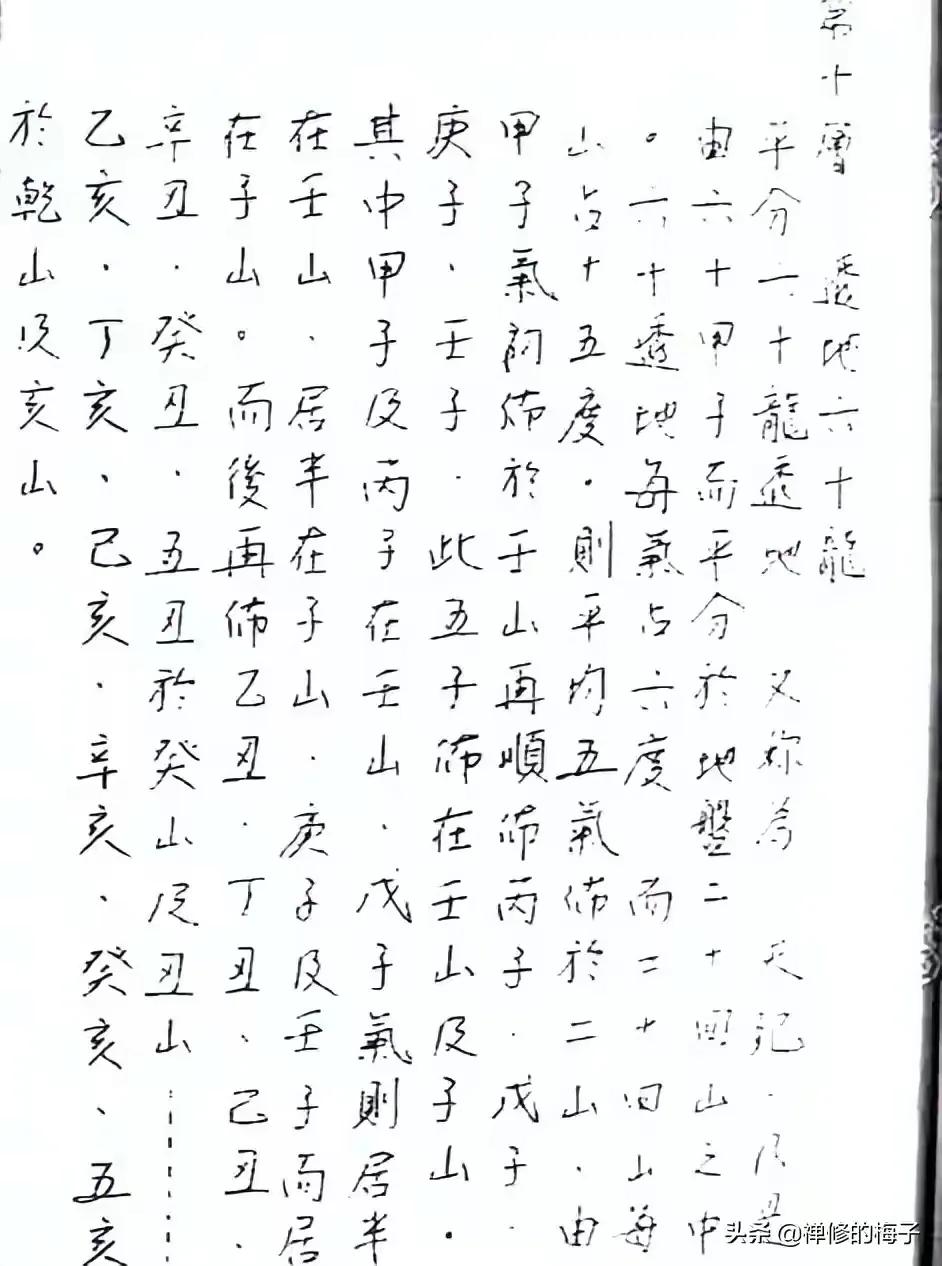 第十層 透地六十龍
平分六十龍透地 又稱為 天紀．
由六十甲子而平分於地盤二十四山之中
。六十透地每氣占六度 而二十四山每
山占十五度．則平均五氣佈於二山．由
甲子氣 佈於壬山再順佈丙子．戊子．
庚子．壬子．此五子佈在壬山及子山．
其中甲子及丙子在壬山．戊子氣則居半
在壬山．居半在子山．庚子及壬子而居
在子山。而後再佈乙丑．丁丑、己丑．
辛丑．癸丑．五丑於癸山及丑山……
乙亥．丁亥、己亥．辛亥、癸亥、五亥
於乾山及亥山。
头条 @禅修的梅子